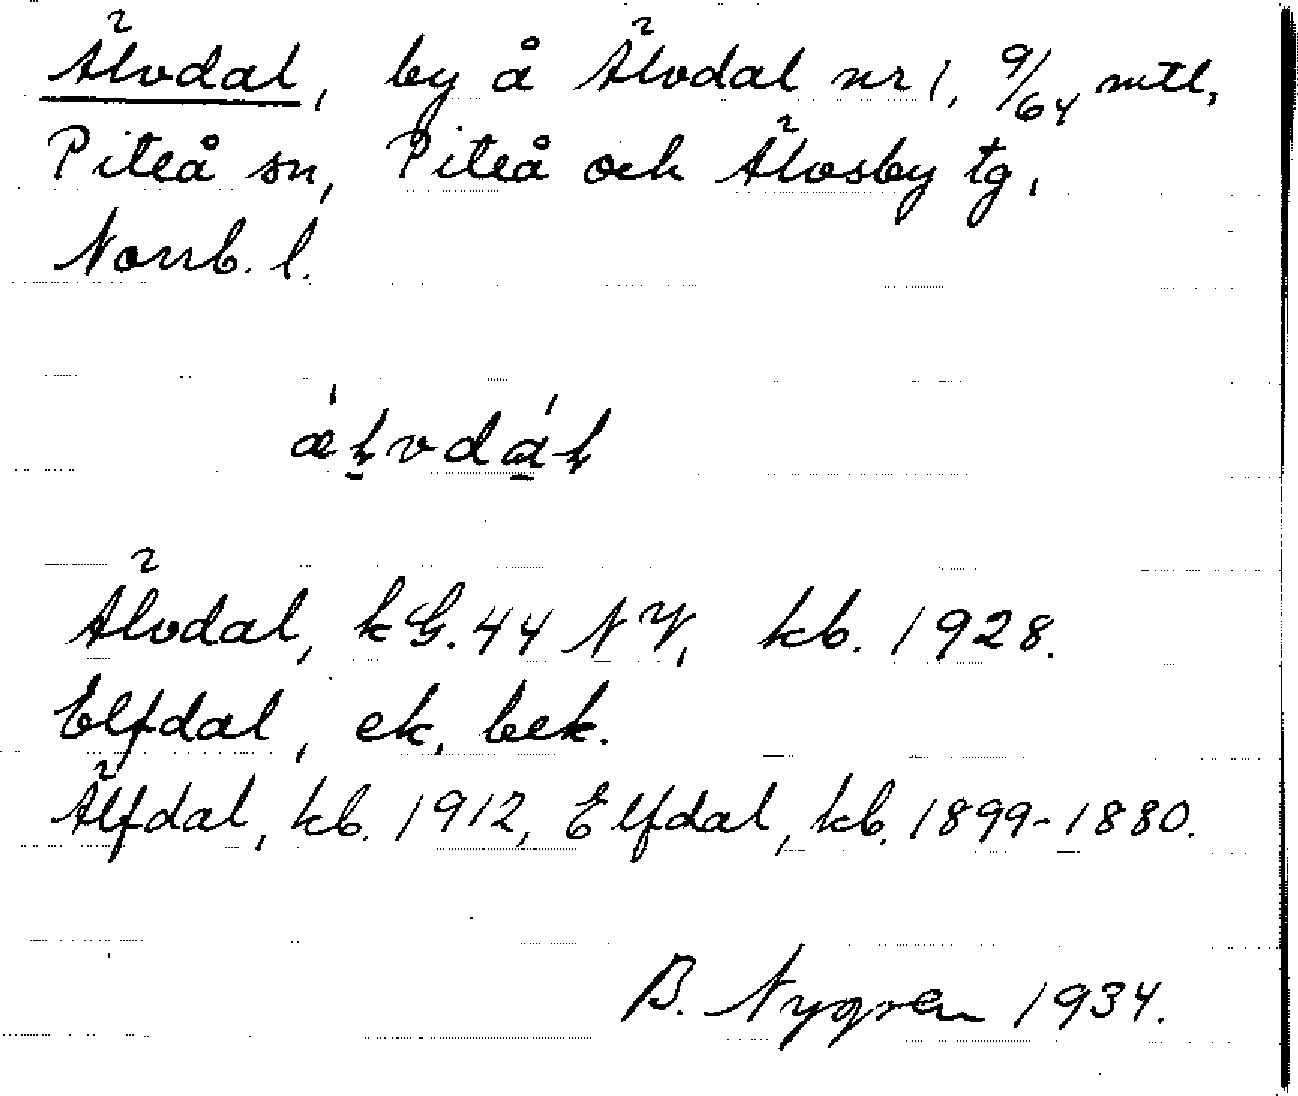 Älvdal, by å Älvdal nr 1, 9/64 mtl,
Piteå sn, Piteå och Älvsby tg,
Norrb. l.
Älvdal, kG. 44 NV, kb. 1928.
Elfdal, ek, bek.
Älfdal, kb. 1912, Elfdal, kb. 1899-1880.
B. Nygren 1934.